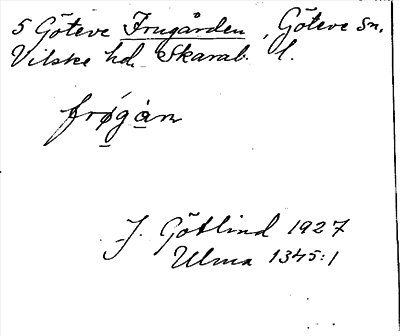 5 Göteve Frugården, Göteve sn.
Vilske hd. Skarab. l.
frøgán
J. Götlind 1927
Ulma 1345:1